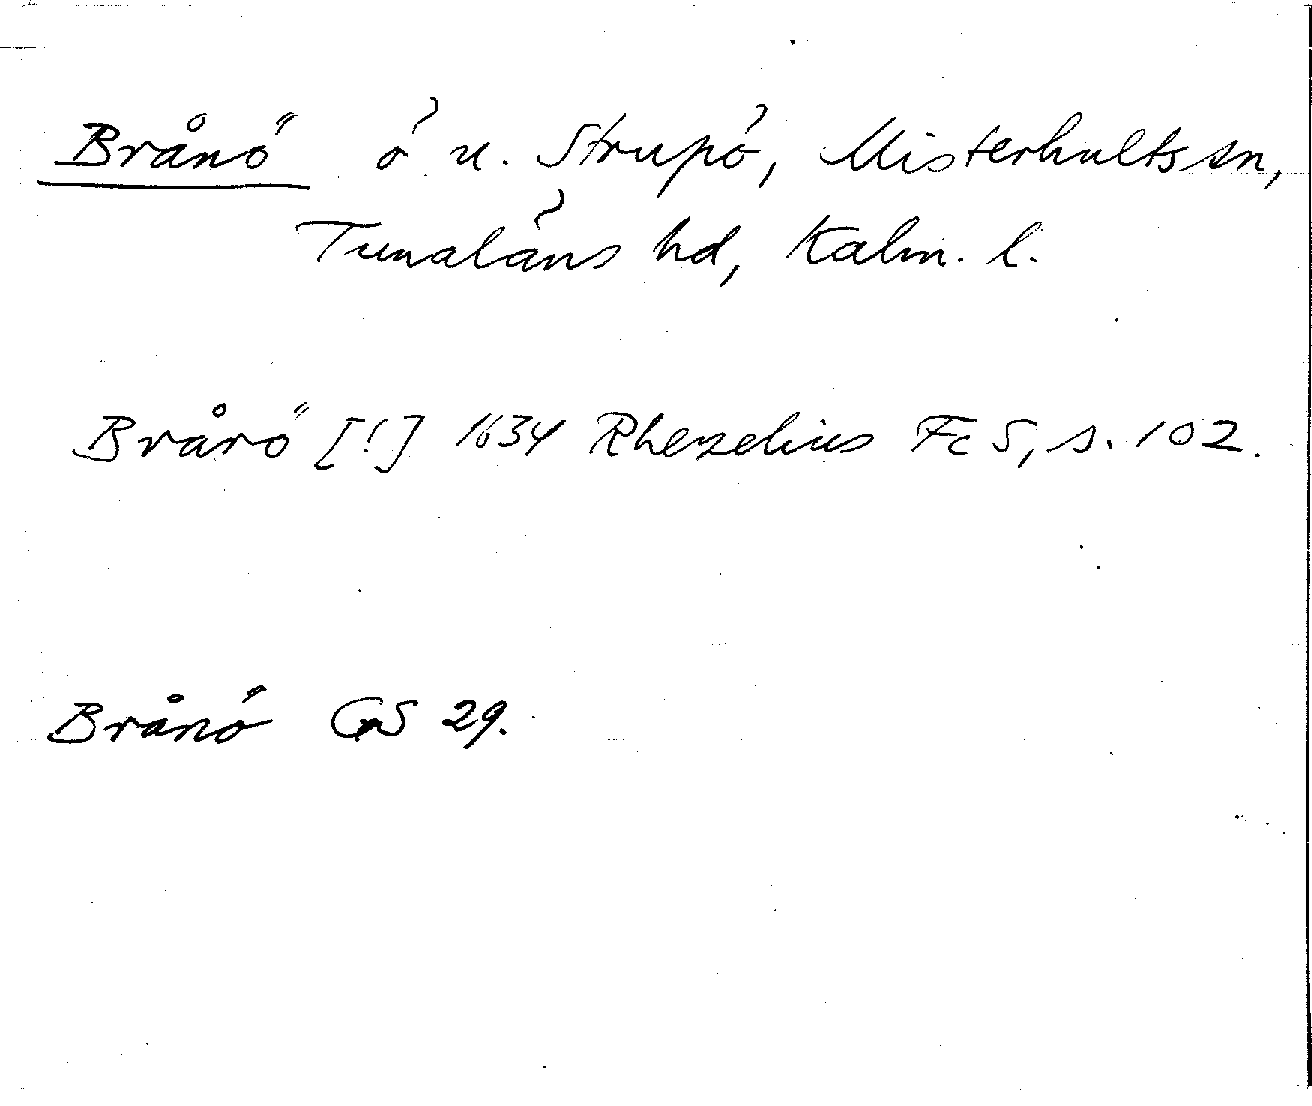 Brånö ö u. Strupö, Misterhults sn,
Tunaläns hd, Kalm. l.
Brårö [!] 1634 Rhezelius Fc 5, s. 102.
Brånö GS 29.